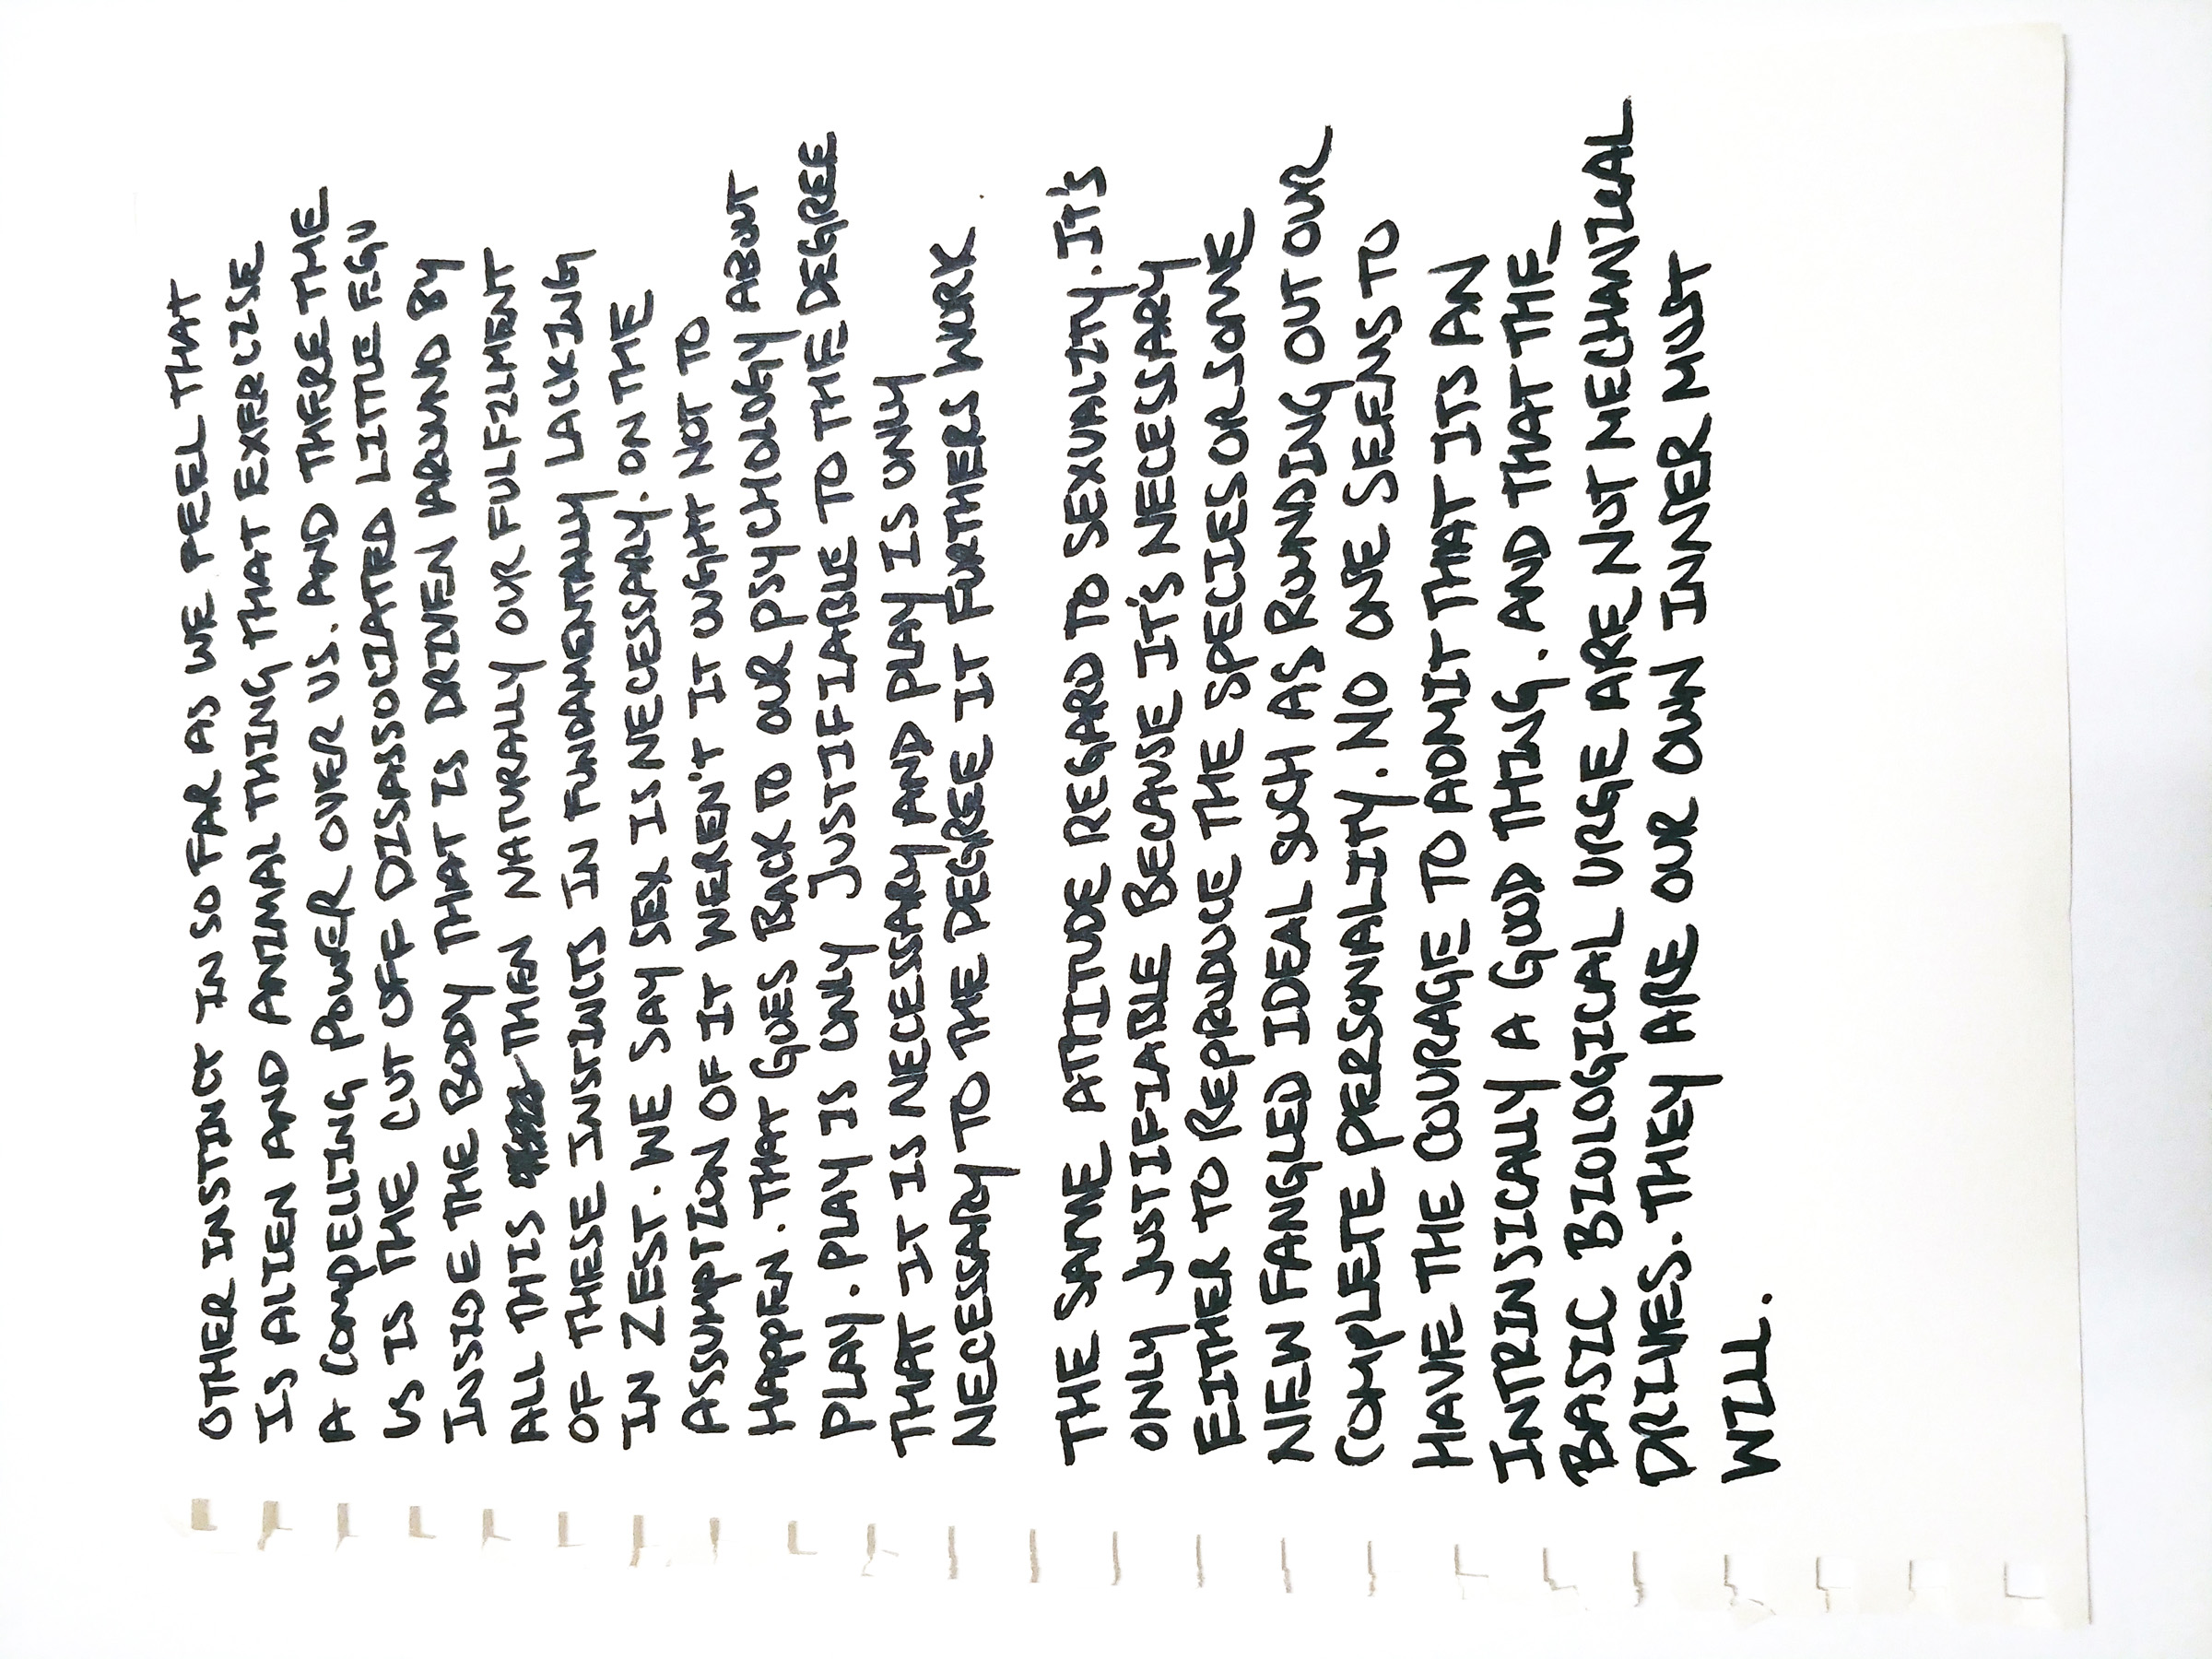 OTHER INSTINCT IN SO FAR AS WE FEEL THAT
IS ALIEN AND ANIMAL THING THAT EXERCISE
A COMPELLING POWER OVER US. AND THERE THE
US IS THE CUT OFF DISASSOCIATED LITTLE EGO
INSIDE THE BODY THAT IS DRIVEN AROUND BY
ALL THIS THEN NATURALLY OUR FULFILMENT
OF THESE INSTINCTS IN FUNDAMENTALLY LACKING
IN ZEST. WE SAY SEX IS NECESSARY. ON THE
ASSUMPTION OF IT WEREN'T IT OUGHT NOT TO
HAPPEN. THAT GOES BACK TO OUR PSYCHOLOGY ABOUT
PLAY. PLAY IS ONLY JUSTIFIABLE TO THE DEGREE
THAT IT IS NECESSARY AND PLAY IS ONLY
NECESSARY TO THE DEGREE IT FURTHERS WORK
THE SAME ATTITUDE REGARD TO SEXUALITY. IT'S
ONLY JUSTIFIABLE BECAUSE IT'S NECESSARY
EITHER TO REPRODUCE THE SPECIES OR SOME
NEW FANGLED IDEAL SUCH AS ROUNDING OUT OUR
COMPLETE PERSONALITY. NO ONE SEEMS TO
HAVE THE COURAGE TO ADMIT THAT ITS AN
INTRINSICALLY A GOOD THING. AND THAT THE
BASIC BIOLOGICAL URGE ARE NOT MECHANICAL
DRIVES. THEY ARE OUR OWN INNER MOST
WILL.